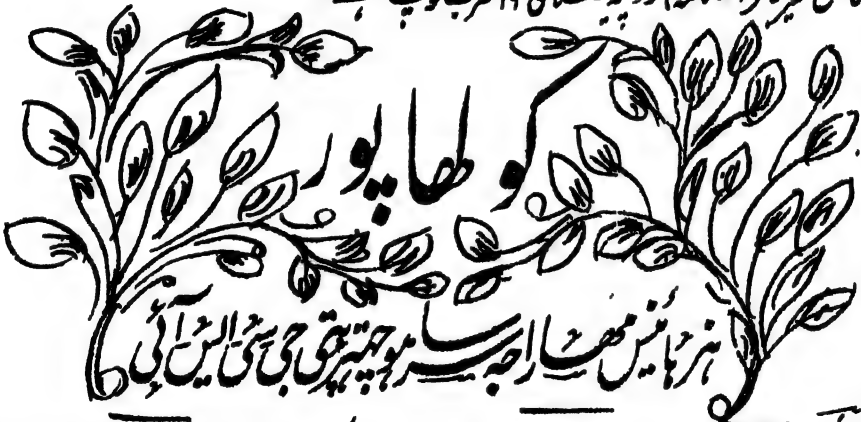 کولھاپور
ہز ہائنس مہاراجہ سر ساہو چہترپتی جی سی ایس آئی